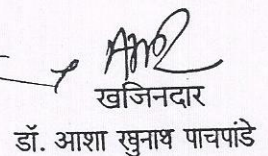 खजिनदार
डॉ. आशा रघुनाथ पाचपांडे